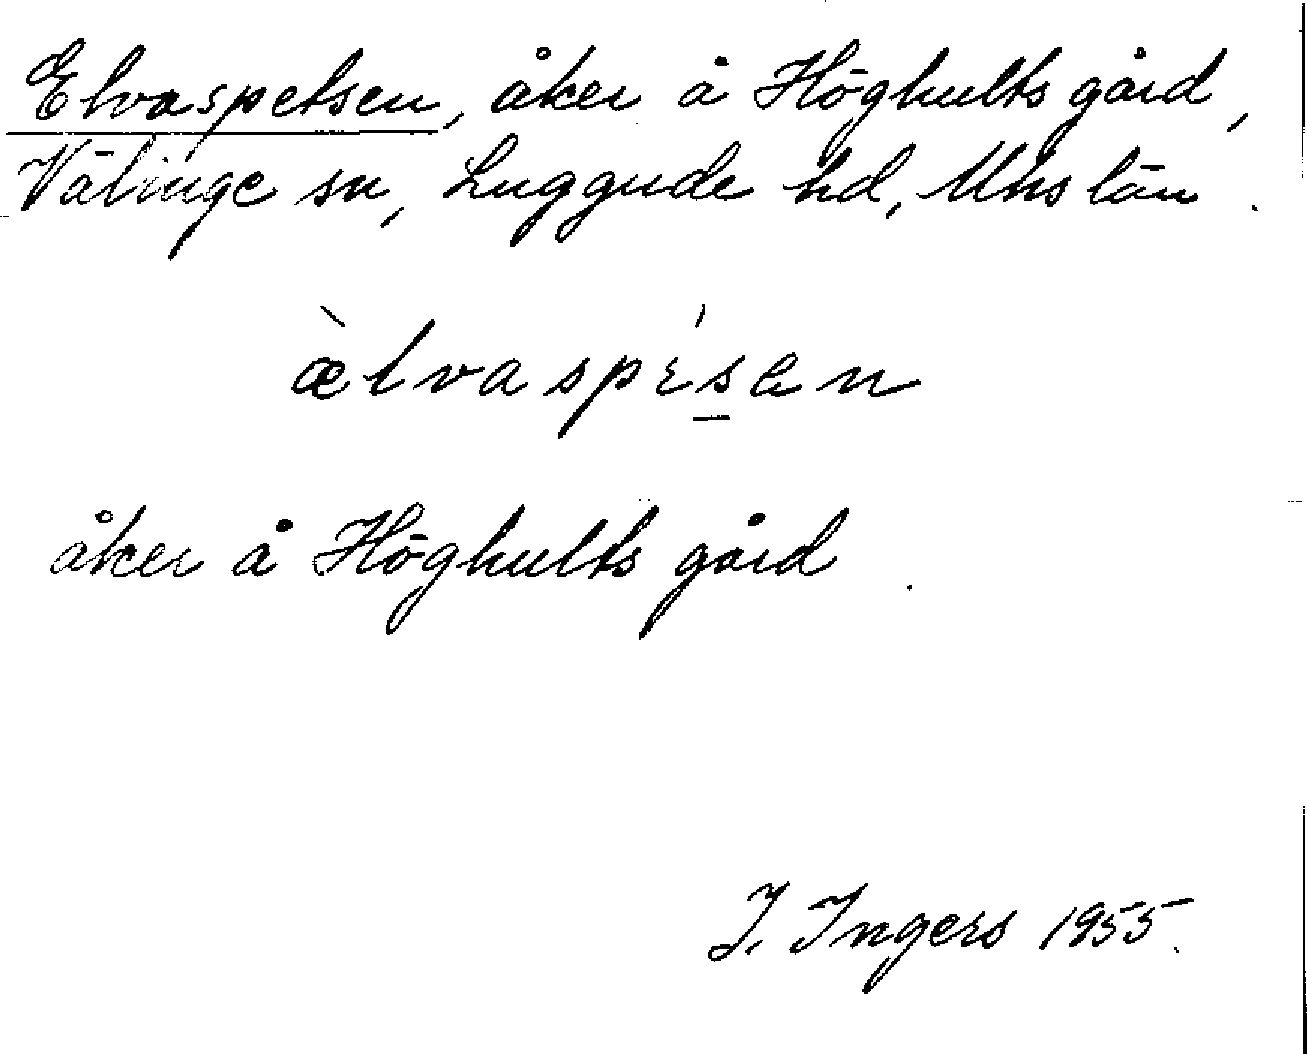 Elvaspetsen, åker å Höghults gård,
Välinge sn, Luggude hd, Mhs län.
æ̀lvaspɛ́s̲ən
åker å Höghults gård.
I. Ingers 1955.